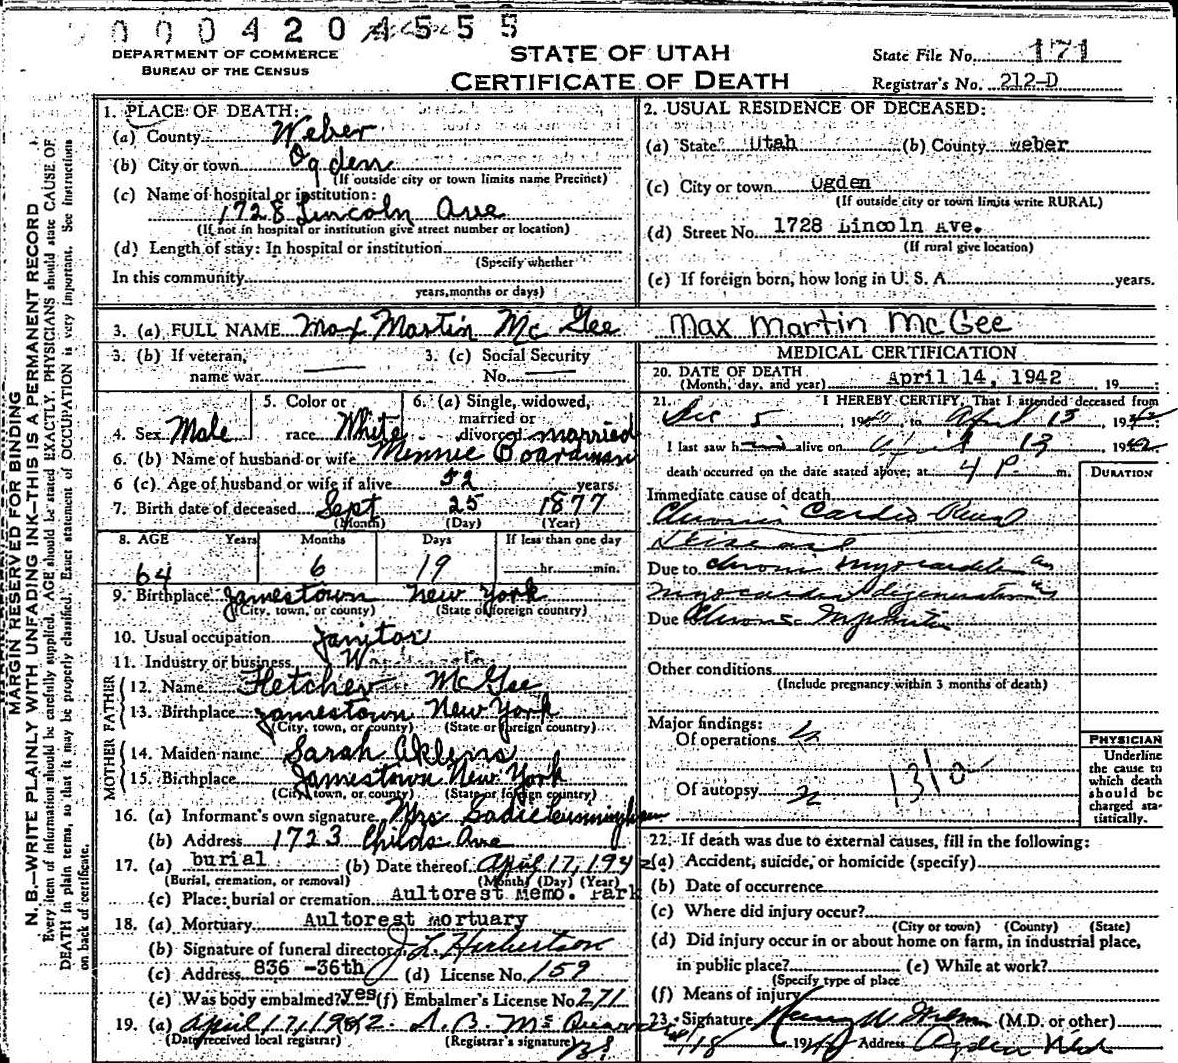 0 0 0 4 2 0 4 5 5 5
DEPARTMENT OF COMMERCE
BUREAU OF THE CENSUS
STATE OF UTAH
CERTIFICATE OF DEATH
State File No. 171
Registrar's No. 212-D
MARGIN RESERVED FOR BINDING
N. B.—WRITE PLAINLY WITH UNFADING INK—THIS IS A PERMANENT RECORD
Every item of information should be carefully supplied. AGE should be stated EXACTLY. PHYSICIANS should state CAUSE OF
DEATH in plain terms, so that it may be properly classified. Exact statement of OCCUPATION is very important. See instructions
on back of certificate.
1. PLACE OF DEATH:
(a) County Weber
(b) City or town Ogden
(If outside city or town limits name Precinct)
(c) Name of hospital or institution:
1728 Lincoln Ave
(If not in hospital or institution give street number or location)
(d) Length of stay: In hospital or institution
(Specify whether
In this community
years, months or days)
2. USUAL RESIDENCE OF DECEASED:
(a) State Utah (b) County Weber
(c) City or town Ogden
(If outside city or town limits write RURAL)
(d) Street No. 1728 Lincoln Ave.
(If rural give location)
(e) If foreign born, how long in U. S. A. years.
3. (a) FULL NAME Max Martin McGee Max Martin McGee
3. (b) If veteran,
name war
3. (c) Social Security
No.
4. Sex Male
5. Color or
race White
6. (a) Single, widowed,
married or
divorced married
6. (b) Name of husband or wife Minnie Boardman
6 (c). Age of husband or wife if alive 52 years.
7. Birth date of deceased Sept 25 1877
(Month) (Day) (Year)
8. AGE Years Months Days If less than one day
64 6 19 hr. min.
9. Birthplace Jamestown New York
(City, town, or county) (State or foreign country)
10. Usual occupation Janitor
11. Industry or business
FATHER
12. Name Fletcher McGee
13. Birthplace Jamestown New York
(City, town, or county) (State or foreign country)
MOTHER
14. Maiden name Sarah
15. Birthplace Jamestown New York
(City, town, or county) (State or foreign country)
16. (a) Informant's own signature Mrs Sadie Cunningham
(b) Address 1723 Childs Ave
17. (a) burial (b) Date thereof April 17, 1942
(Burial, cremation, or removal) (Month) (Day) (Year)
(c) Place: burial or cremation Aultorest Memo. Park
18. (a) Mortuary Aultorest Mortuary
(b) Signature of funeral director J. L. Herbertson
(c) Address 836 -36th (d) License No. 159
(e) Was body embalmed? Yes (f) Embalmer's License No 271
19. (a) April 17, 1942
(Date received local registrar) (Registrar's signature)
MEDICAL CERTIFICATION
20. DATE OF DEATH
(Month, day, and year) April 14, 1942, 19
21. I HEREBY CERTIFY, That I attended deceased from
Dec 5 1940, to April 13, 1942
I last saw him alive on April 13 1942
death occurred on the date stated above; at 4 P m.
DURATION
Immediate cause of death
Chronic Cardio Renal
Disease
Due to chronic myocarditis
myocardial degeneration
Due Chronic
Other conditions
(Include pregnancy within 3 months of death)
Major findings:
Of operations
Of autopsy
1310
PHYSICIAN
Underline
the cause to
which death
should be
charged sta-
tistically.
22. If death was due to external causes, fill in the following:
(a) Accident, suicide, or homicide (specify)
(b) Date of occurrence
(c) Where did injury occur?
(City or town) (County) (State)
(d) Did injury occur in or about home on farm, in industrial place,
in public place? (e) While at work?
(Specify type of place
(f) Means of injury
23. Signature (M.D. or other)
Address Ogden Utah